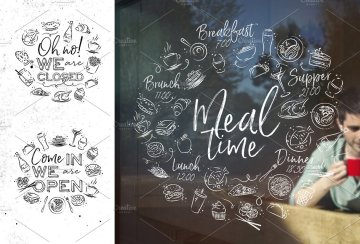 Oh no!
WE are
CLOSED
Come IN
WE are
OPEN
Breakfast
7:00
Brunch
11:00
Supper
21:00
Meal
time
Lunch
12:00
Dinner